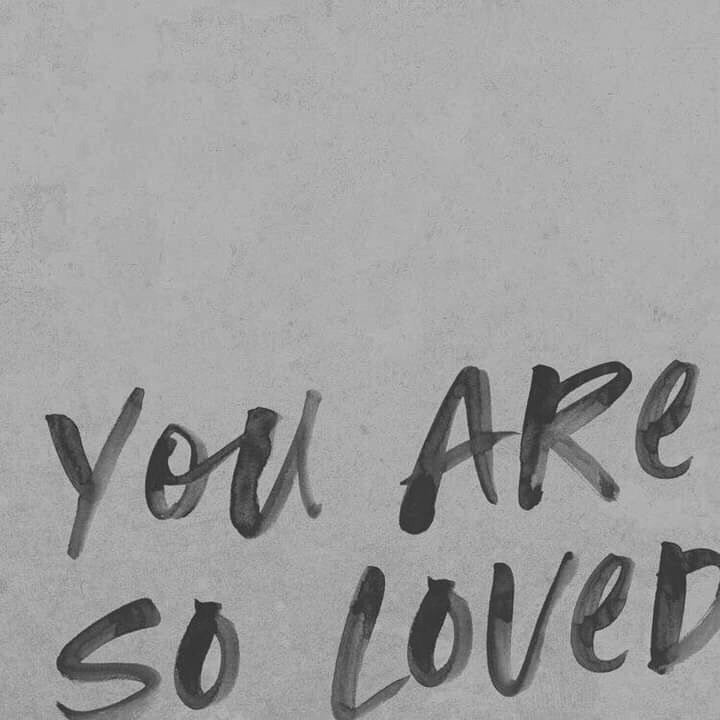 YOU ARe
SO LOVeD